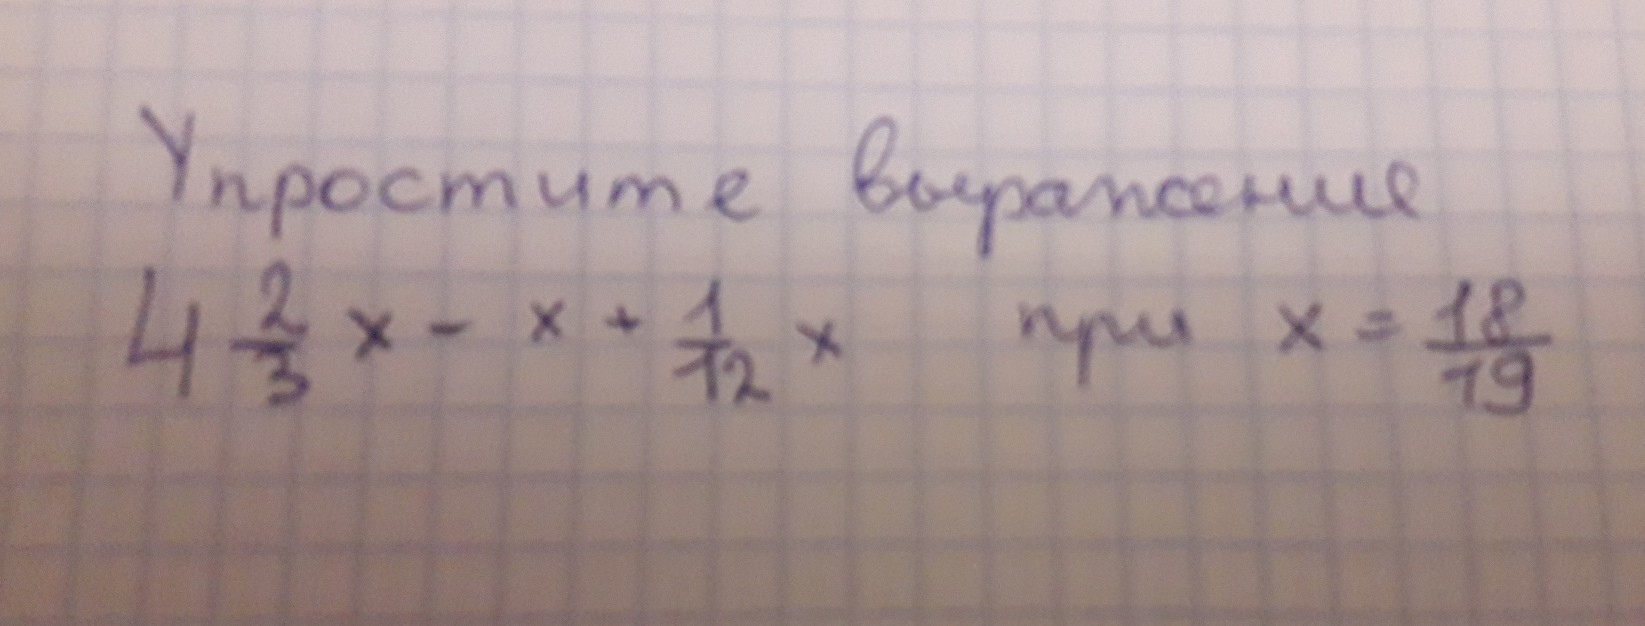 Упростите выражение
4 2/3 x - x + 1/12 x при x = 18/19